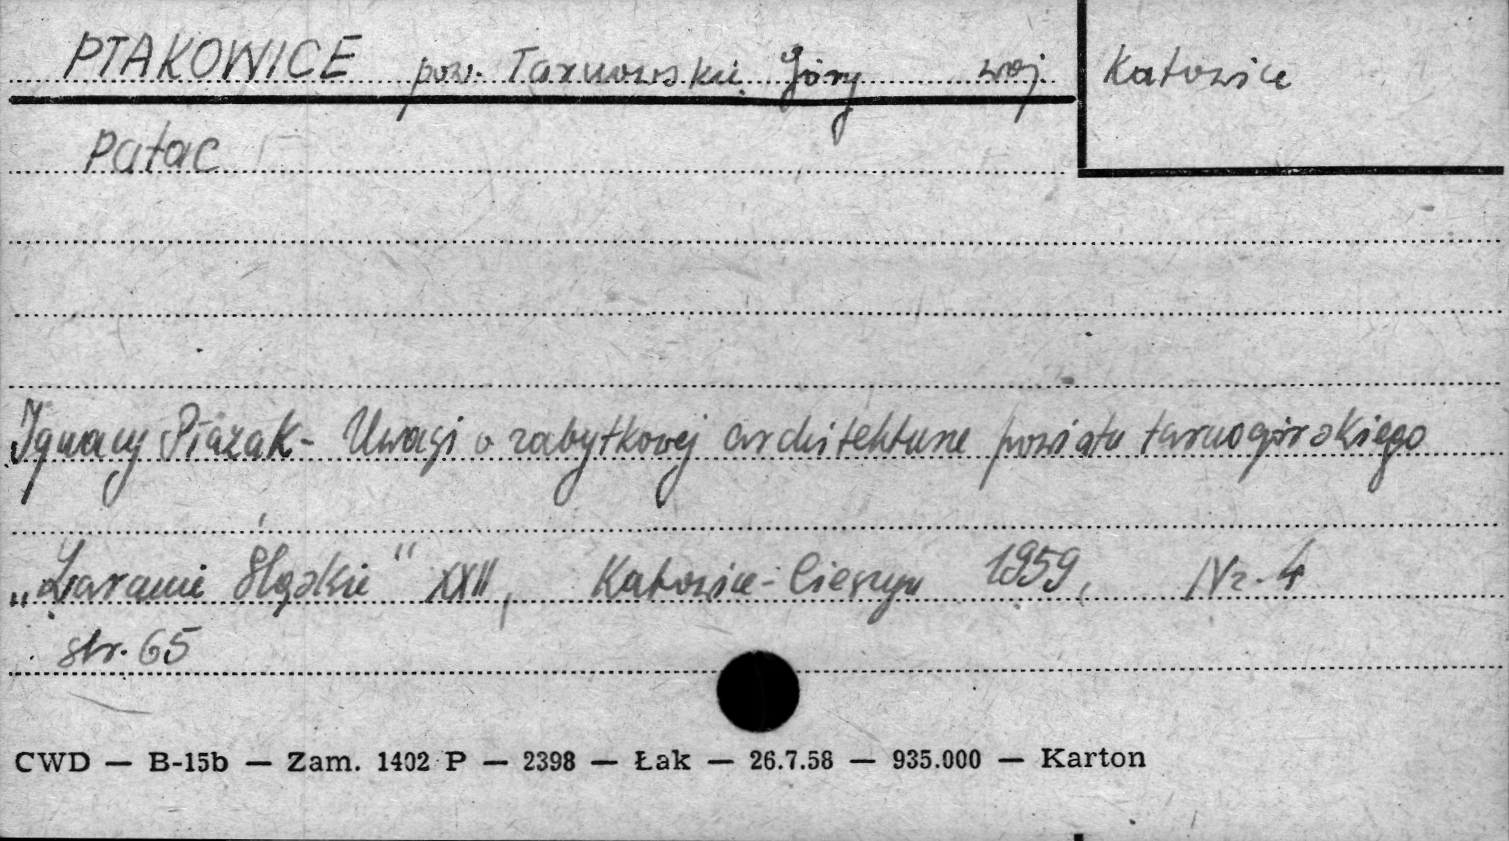 PTAKOWICE pow. Tarnowskie Góry woj Katowice
Pałac
Ignacy Płazak - Uwagi o zabytkowej architekturze powiatu tarnogórskiego
„Zaranie Śląskie" XXII, Katowice - Cieszyn 1959, Nr. 4
str. 65
CWD — B-15b — Zam. 1402 P — 2398 — Łak — 26.7.58 — 935.000 — Karton